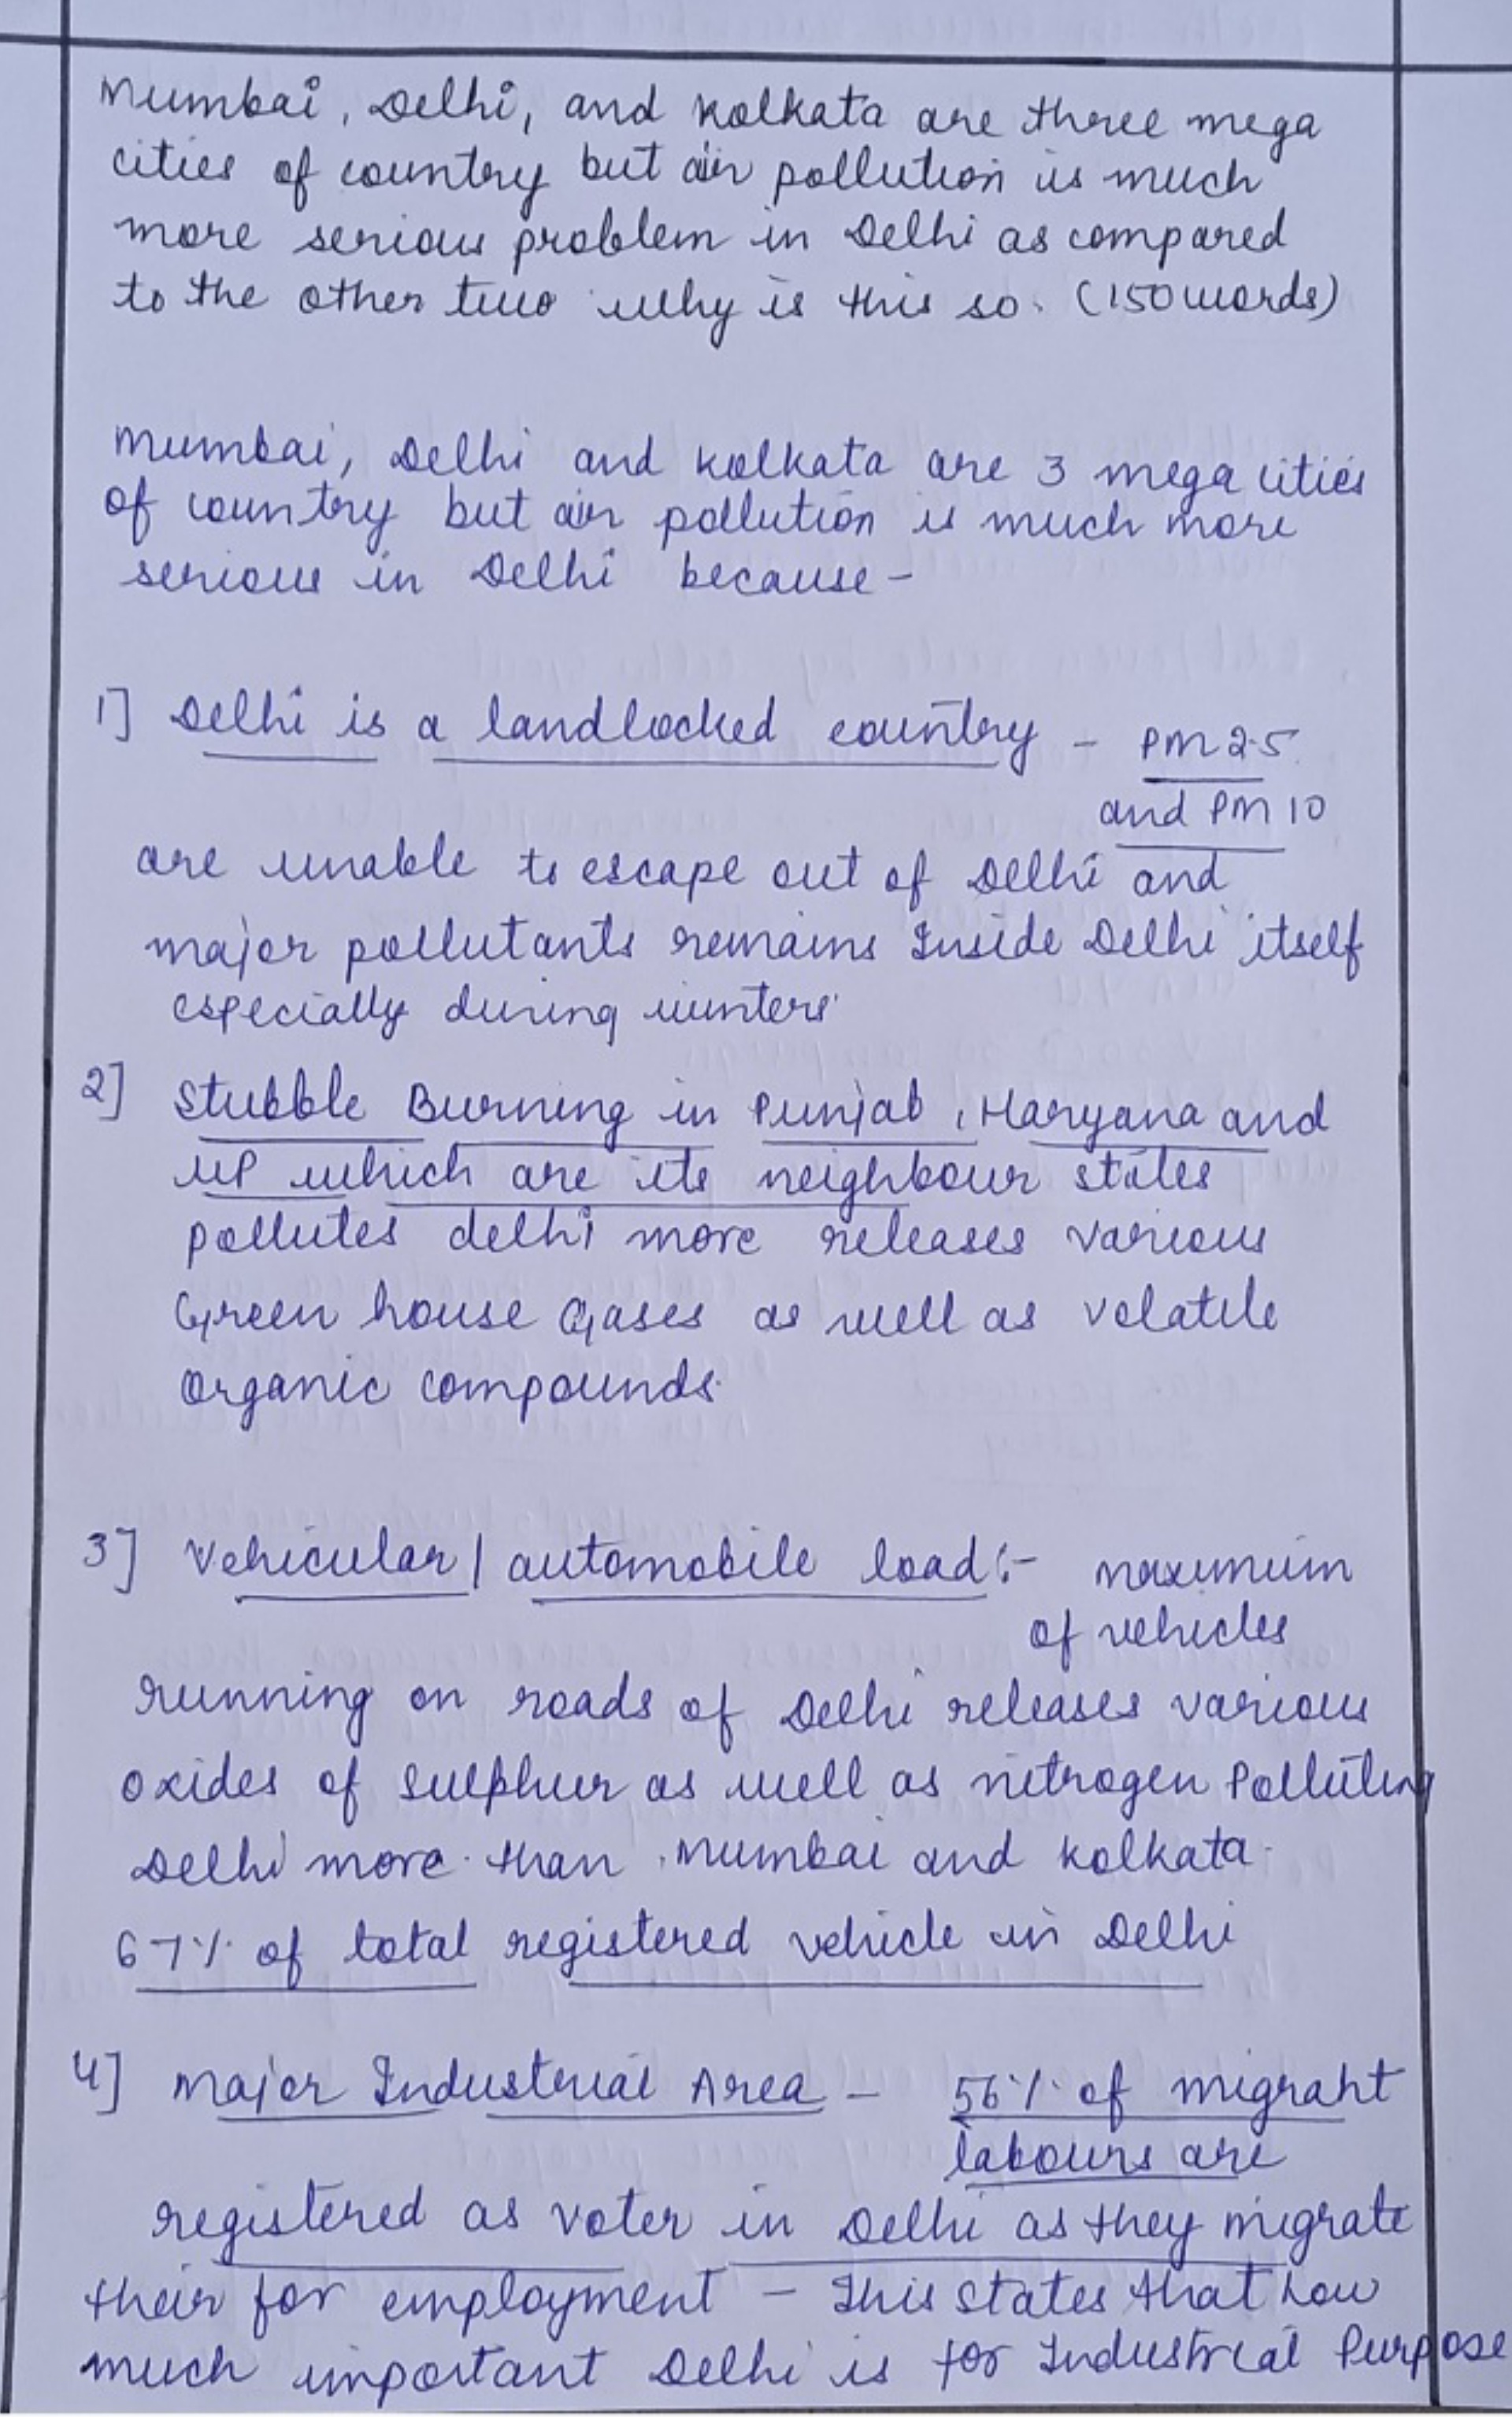 Mumbai, Delhi, and Kolkata are three mega
cities of country but air pollution is much
more serious problem in Delhi as compared
to the other two why is this so. (150 words)
Mumbai, Delhi and Kolkata are 3 mega cities
of country but air pollution is much more
serious in Delhi because -
1] Delhi is a landlocked country - PM 2.5
and PM 10
are unable to escape out of Delhi and
major pollutants remains Inside Delhi itself
especially during winters
2] Stubble Burning in Punjab, Haryana and
UP which are its neighbour states
pollutes delhi more releases various
Green house Gases as well as volatile
organic compounds.
3] Vehicular / automobile load :- maximum
of vehicles
running on roads of Delhi releases various
oxides of sulphur as well as nitrogen Polluting
Delhi more than Mumbai and Kolkata.
67% of total registered vehicle in Delhi
4] Major Industrial Area - 56% of migrant
labours are
registered as voter in Delhi as they migrate
their for employment - This states that how
much important Delhi is for Industrial Purpose